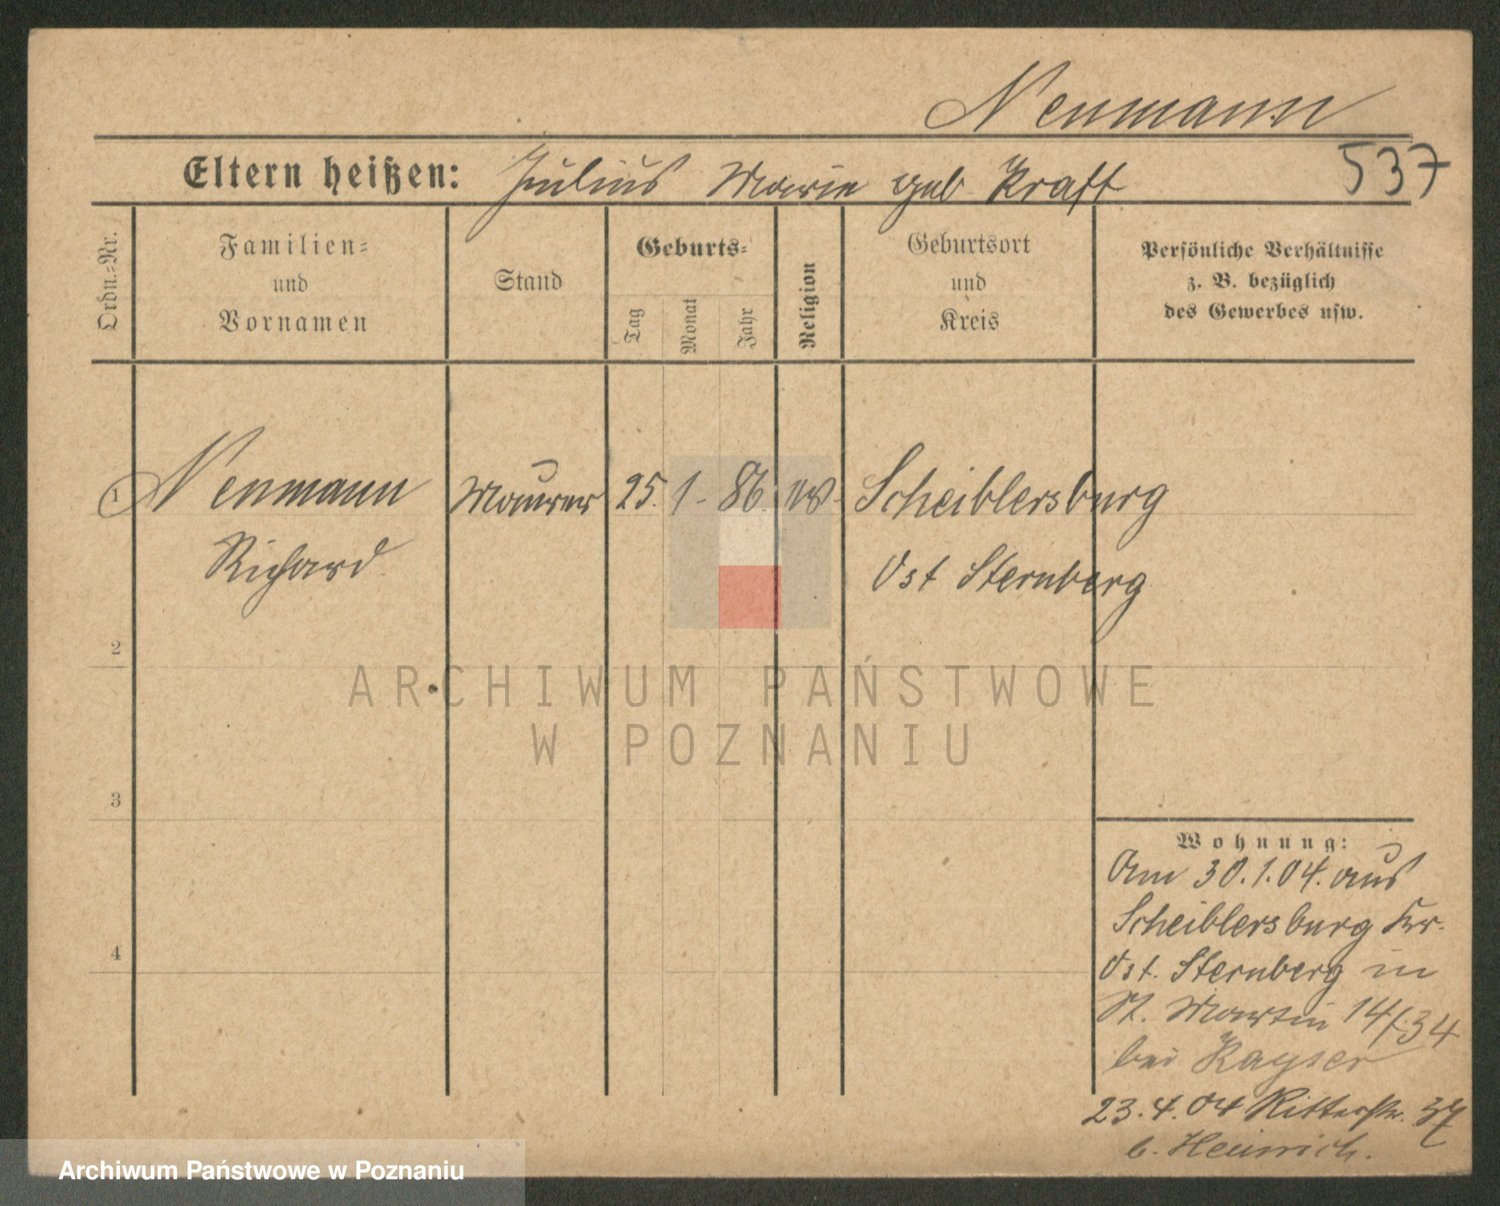 Neumann
537
Eltern heißen: Julius Marie geb Kraft
Ordn.-Nr.
Familien-
und
Vornamen
Stand
Geburts-
Tag
Monat
Jahr
Religion
Geburtsort
und
Kreis
Persönliche Verhältnisse
z. B. bezüglich
des Gewerbes usw.
1 Neumann Maurer 25. 1. 86. ev. Scheiblersburg
Richard Ost Sternberg
2
3
4
Wohnung:
Am 30.1.04. aus
Scheiblersburg Kr.
Ost. Sternberg in
St. Martin 14/34
bei Kayser
23.4.04 Ritterstr. 37
b. Heinrich.
ARCHIWUM PAŃSTWOWE
W POZNANIU
Archiwum Państwowe w Poznaniu